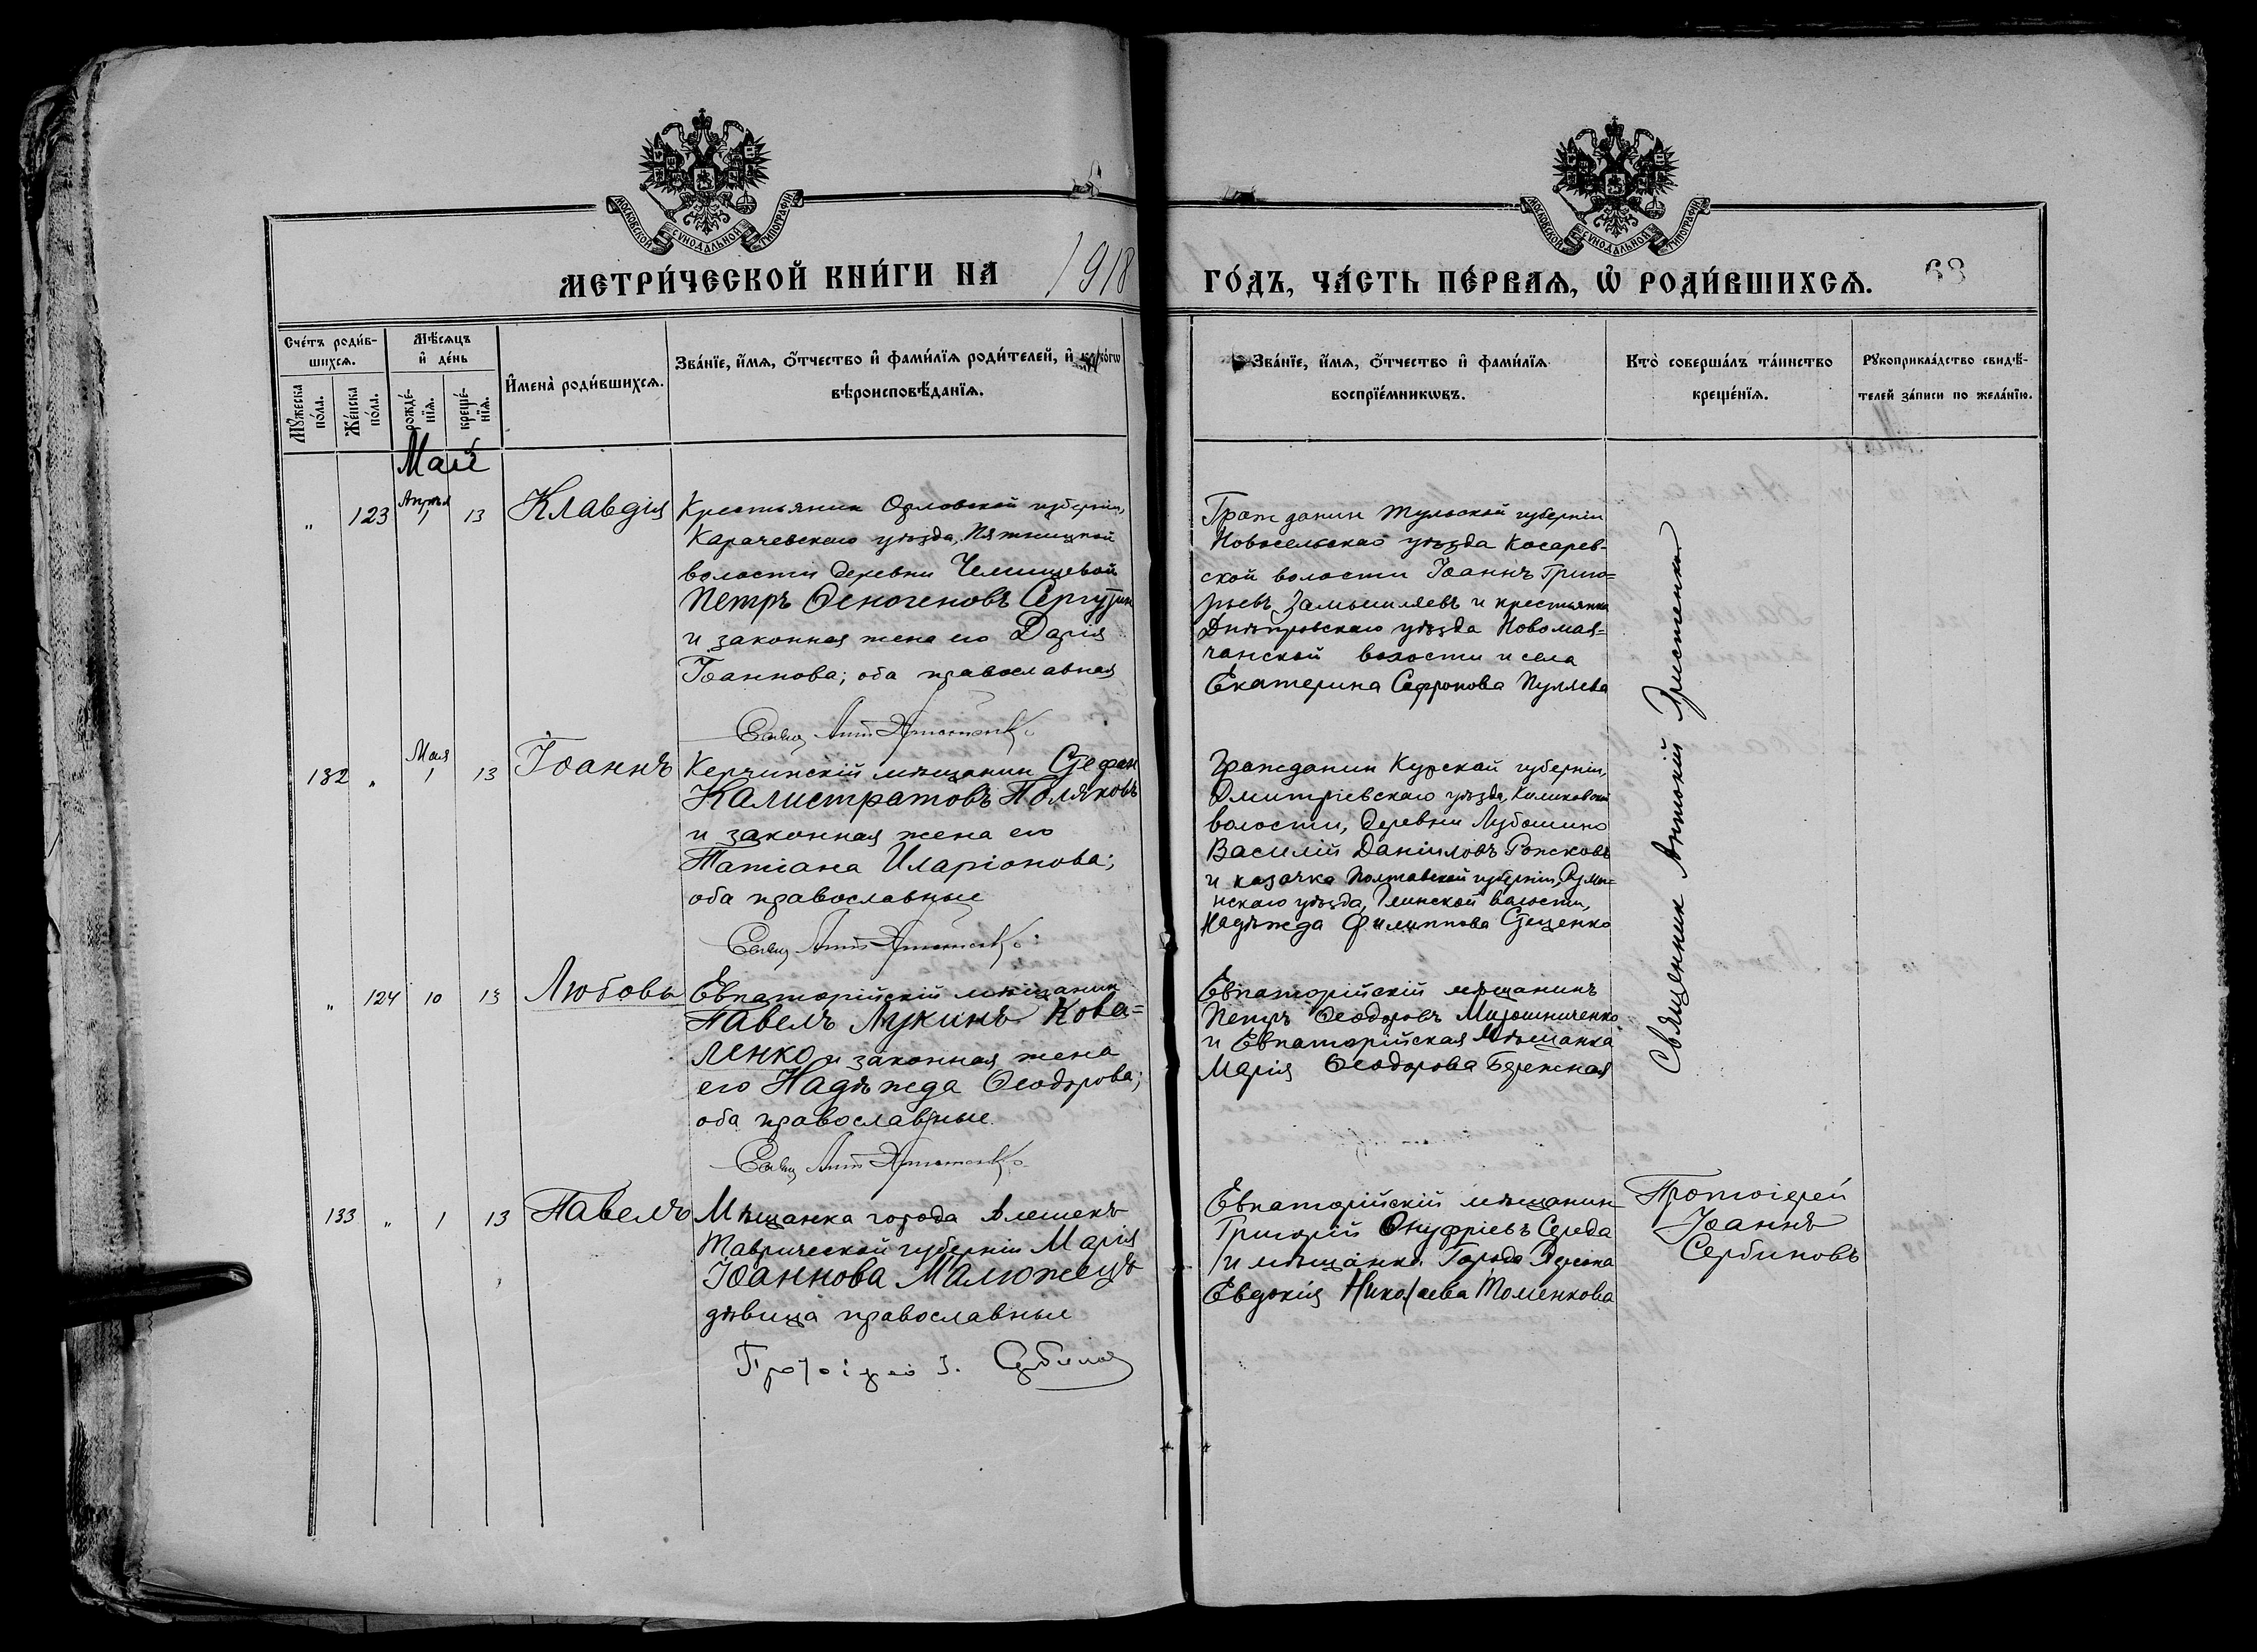 МОСКОВСКОЙ СѴНОДАЛЬНОЙ ТИПОГРАФІИ
МОСКОВСКОЙ СѴНОДАЛЬНОЙ ТИПОГРАФІИ
МЕТРИ́ЧЕСКОЙ КНИ́ГИ НА 1918
ГО́ДЪ, ЧА́СТЬ ПЕ́РВАѦ, Ѡ҆ РОДИ́ВШИХСѦ. 68
Сче́тъ роди́в-
шихсѧ.
Мꙋ́жеска по́ла.
Же́нска по́ла.
Мѣ́сѧцъ и҆ де́нь
рожде́-нїѧ.
креще́-нїѧ.
И҆мена̀ роди́вшихсѧ.
Зва́нїе, и҆́мѧ, ѻ҆́тчество и҆ фами́лїѧ роди́телей, и҆ како́гѡ
вѣроисповѣ́данїѧ.
Зва́нїе, и҆́мѧ, ѻ҆́тчество и҆ фами́лїѧ
воспрїе́мникѡвъ.
Кто̀ соверша́лъ та́инство
креще́нїѧ.
Рꙋкоприкла́дство свидѣ́-
телей за́писи по жела́нїю.
Май
" 123 Апрѣля 1 13 Клавдія
Крестьянин Орловской губерніи,
Карачевскаго уѣзда, Пятницкой
волости деревни
Петръ Ѳеногеновъ
и законная жена его Дарія
Іоаннова; оба православная
Свящ Ант Христенко
Гражданин Тульской губерніи
Новосельскаго уѣзда Косарев-
ской волости Іоаннъ Григо=
рьевъ Замышляевъ и крестьянка
Днѣпровскаго уѣзда Новомая=
чанской волости и села
Екатерина Сафронова Пуляева
Священник Антоній Христенко
132 " Мая 1 13 Іоаннъ
Керчинскій мѣщанин Стефан
Калистратовъ Поляковъ
и законная жена его
Татіана Иларіонова;
оба православные
Свящ Ант Христенко
Гражданин Курской губерніи,
Дмитріевскаго уѣзда,
волости, деревни Лубошино
Василій Даніиловъ
и казачка Полтавской губерніи, Ромн=
нскаго уѣзда, Глинской волости,
Надѣжда Филиппова Стеценко
" 124 10 13 Любовь
Евпаторійскій мѣщанин
Павелъ Лукинъ Кова=
ленко и законная жена
его Надѣжда Ѳеодорова;
оба православные
Свящ Ант Христенко
Евпаторійскій мѣщанинъ
Петръ Ѳеодоровъ Мирошниченко
и Евпаторійская Мѣщанка
Марія Ѳеодорова Бережная
133 " 1 13 Павелъ
Мѣщанка города Алешекъ
Таврической губерніи Марія
Іоаннова Малюжецъ
дѣвица православные
Протоіерей І. Сербинов
Евпаторійскій мѣщанин
Григорій Онуфріевъ Середа
и мѣщанка Города Херсона
Евдокія Николаева Томенкова
Протоіерей
Іоаннъ
Сербиновъ